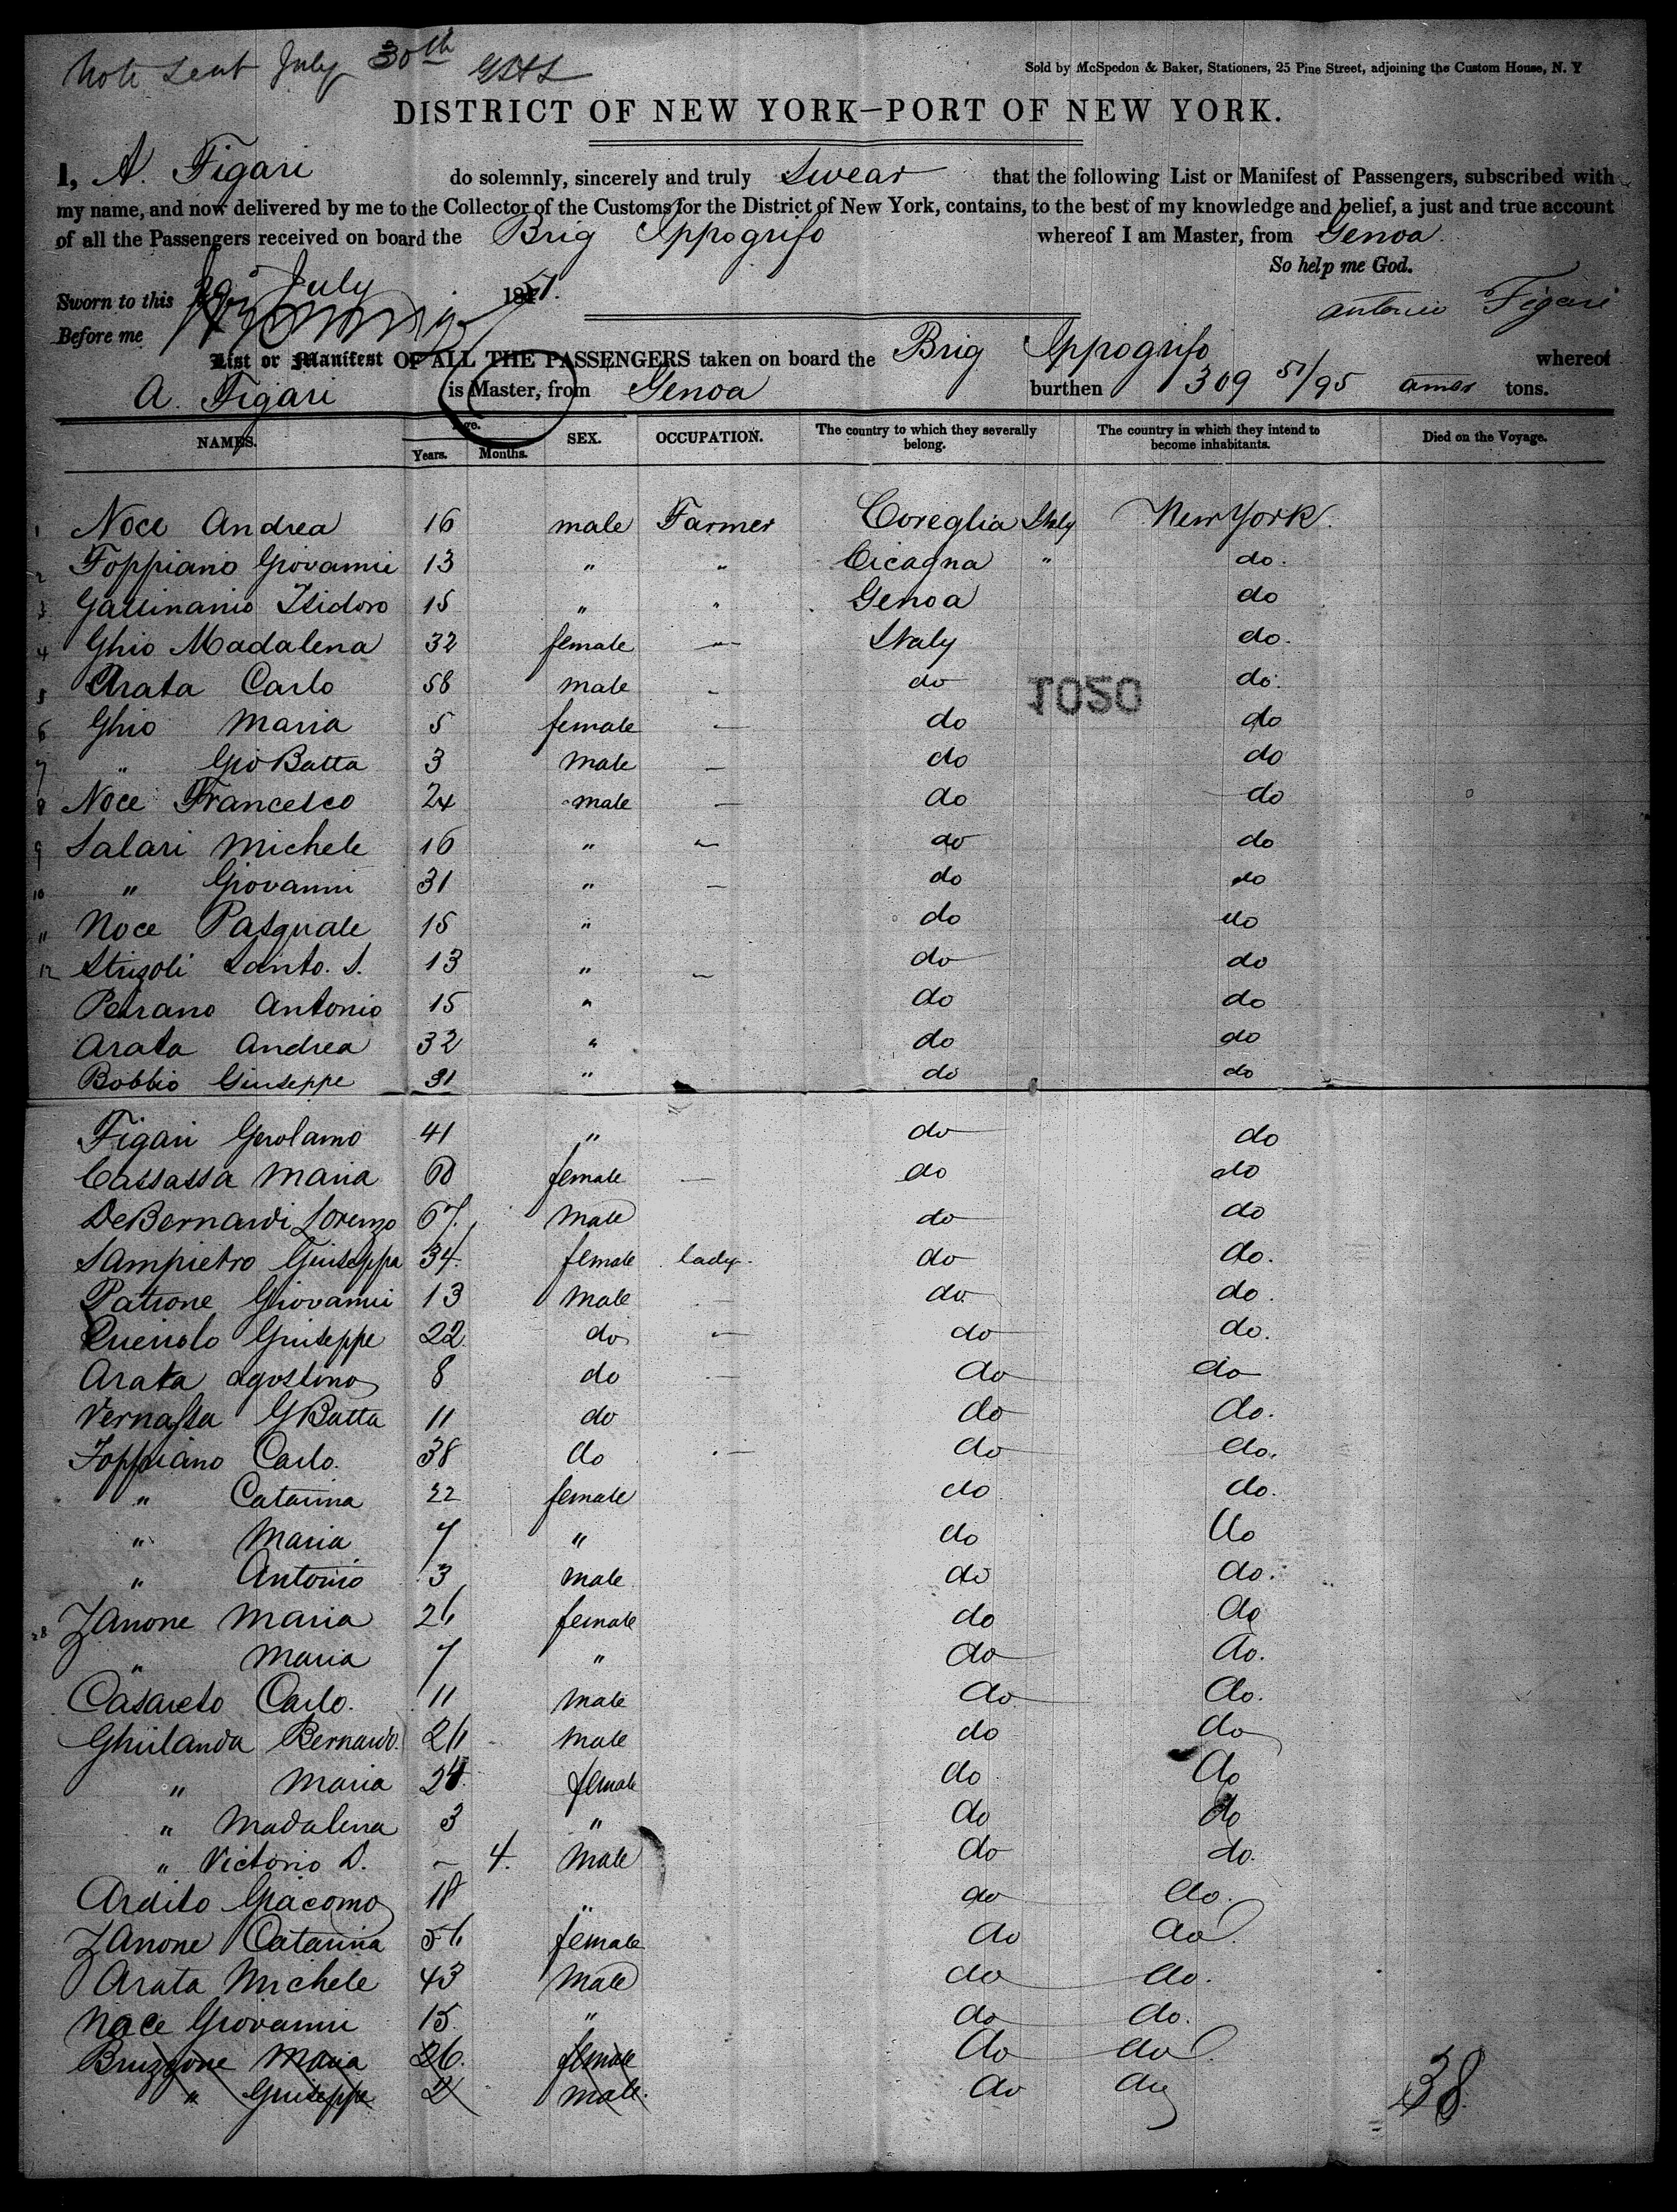 Note Sent July 30th
Sold by McSpedon & Baker, Stationers, 25 Pine Street, adjoining the Custom House, N. Y
DISTRICT OF NEW YORK—PORT OF NEW YORK.
I, A. Figari do solemnly, sincerely and truly Swear that the following List or Manifest of Passengers, subscribed with
my name, and now delivered by me to the Collector of the Customs for the District of New York, contains, to the best of my knowledge and belief, a just and true account
of all the Passengers received on board the Brig Ippogrifo whereof I am Master, from Genoa.
So help me God.
Sworn to this July 18
Antonio Figari
Before me
List or Manifest OF ALL THE PASSENGERS taken on board the Brig Ippogrifo whereof
A. Figari is Master, from Genoa burthen 309 51/95 tons.
NAMES. Age. Years. Months. SEX. OCCUPATION. The country to which they severally belong. The country in which they intend to become inhabitants. Died on the Voyage.
1 Noce Andrea 16 male Farmer Coreglia Italy New York.
2 Foppiano Giovanni 13 " " Cicagna " do.
3 Isidoro 15 " " Genoa do
4 Ghio Madalena 32 female — Italy do.
5 Arata Carlo 58 male — do do.
1020
6 Ghio Maria 5 female — do do
7 " Gio Batta 3 male — do do
8 Noce Francesco 24 male — do do
9 Salari Michele 16 " — do do
10 " Giovanni 31 " — do do
11 Noce Pasquale 15 " do do
12 Santo. S. 13 " — do do
Petrano Antonio 15 " do do
Arata Andrea 32 " do do
Bobbio Giuseppe 31 " do do
Figari Gerolamo 41 " do do
Cassassa Maria 60 female — do do
DeBernardi Lorenzo 67. male do do
Sampietro Giuseppa 34. female lady. do do.
Patrone Giovanni 13 male — do do.
Giuseppe 22 do — do do.
Arata Agostino 8 do — do do
Vernassa G Batta 11 do do do.
Foppiano Carlo. 38 do — do do.
" Catarina 22 female do do.
" Maria 7 " do do
" Antonio 3 male do do.
28 Zanone Maria 26 female do do
" Maria 7 " do do.
Casareto Carlo. 11 male do do.
Bernardo. 26 male do do
" Maria 24. female do do
" Madalena 3 " do do
" Victorio D. — 4. male do do.
Ardito Giacomo 18 " do do.
Zanone Catarina 56 female do do.
Arata Michele 43 male do do.
Noce Giovanni 15. " do do.
Bruzzone Maria 26. female do do.
" Giuseppe 2 male. do do
38